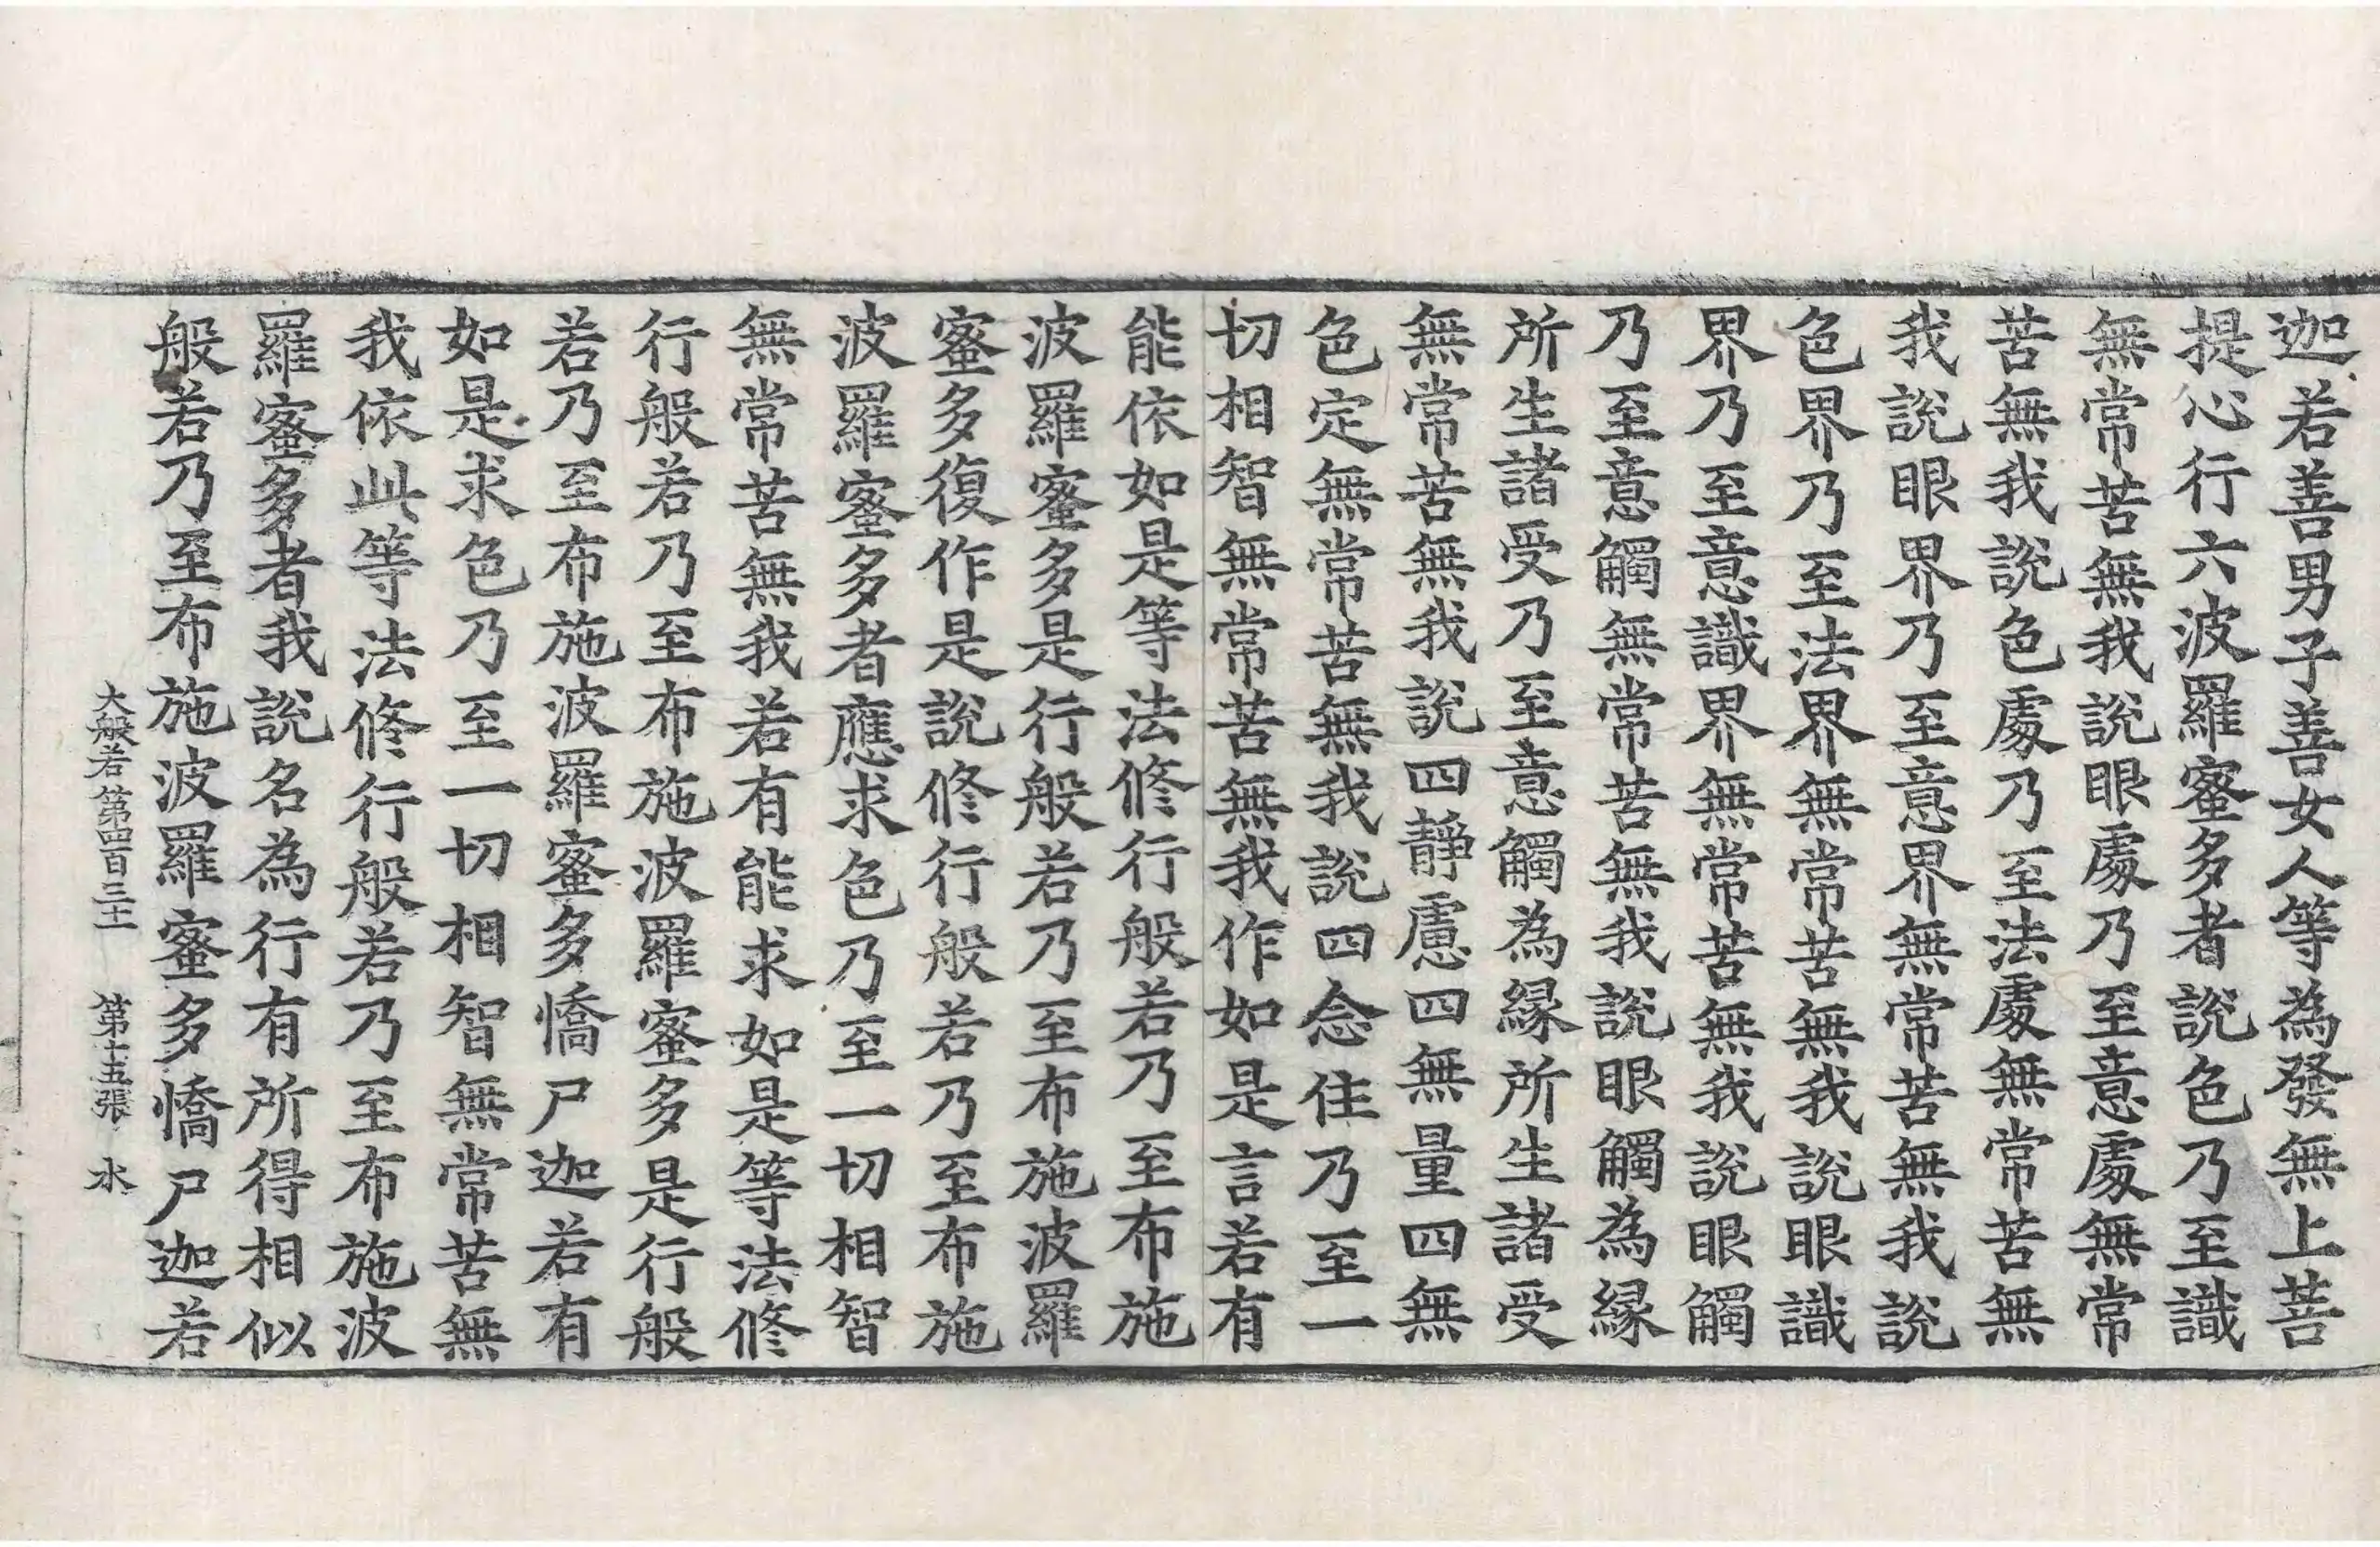 迦若善男子善女人等為發無上菩
提心行六波羅蜜多者說色乃至識
無常苦無我說眼處乃至意處無常
苦無我說色處乃至法處無常苦無
我說眼界乃至意界無常苦無我說
色界乃至法界無常苦無我說眼識
界乃至意識界無常苦無我說眼觸
乃至意觸無常苦無我說眼觸為緣
所生諸受乃至意觸為緣所生諸受
無常苦無我說四靜慮四無量四無
色定無常苦無我說四念住乃至一
切相智無常苦無我作如是言若有
能依如是等法修行般若乃至布施
波羅蜜多是行般若乃至布施波羅
蜜多復作是說修行般若乃至布施
波羅蜜多者應求色乃至一切相智
無常苦無我若有能求如是等法修
行般若乃至布施波羅蜜多是行般
若乃至布施波羅蜜多憍尸迦若有
如是求色乃至一切相智無常苦無
我依此等法修行般若乃至布施波
羅蜜多者我說名為行有所得相似
般若乃至布施波羅蜜多憍尸迦若
大般若第四百三十二 第十五張 水